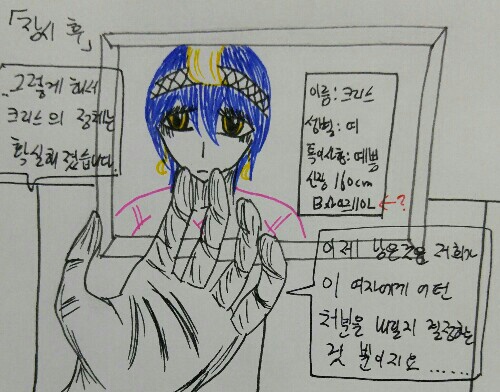 「잠시 후」
..그렇게 해서
크리스의 정체는
확실해졌습니다.
이름: 크리스
성별: 여
특이사항: 예쁨
신장 160cm
←?
이제 남은것은 저희가
이 여자에게 어떤
처벌을 내릴지 결정하는
것 뿐이지요......